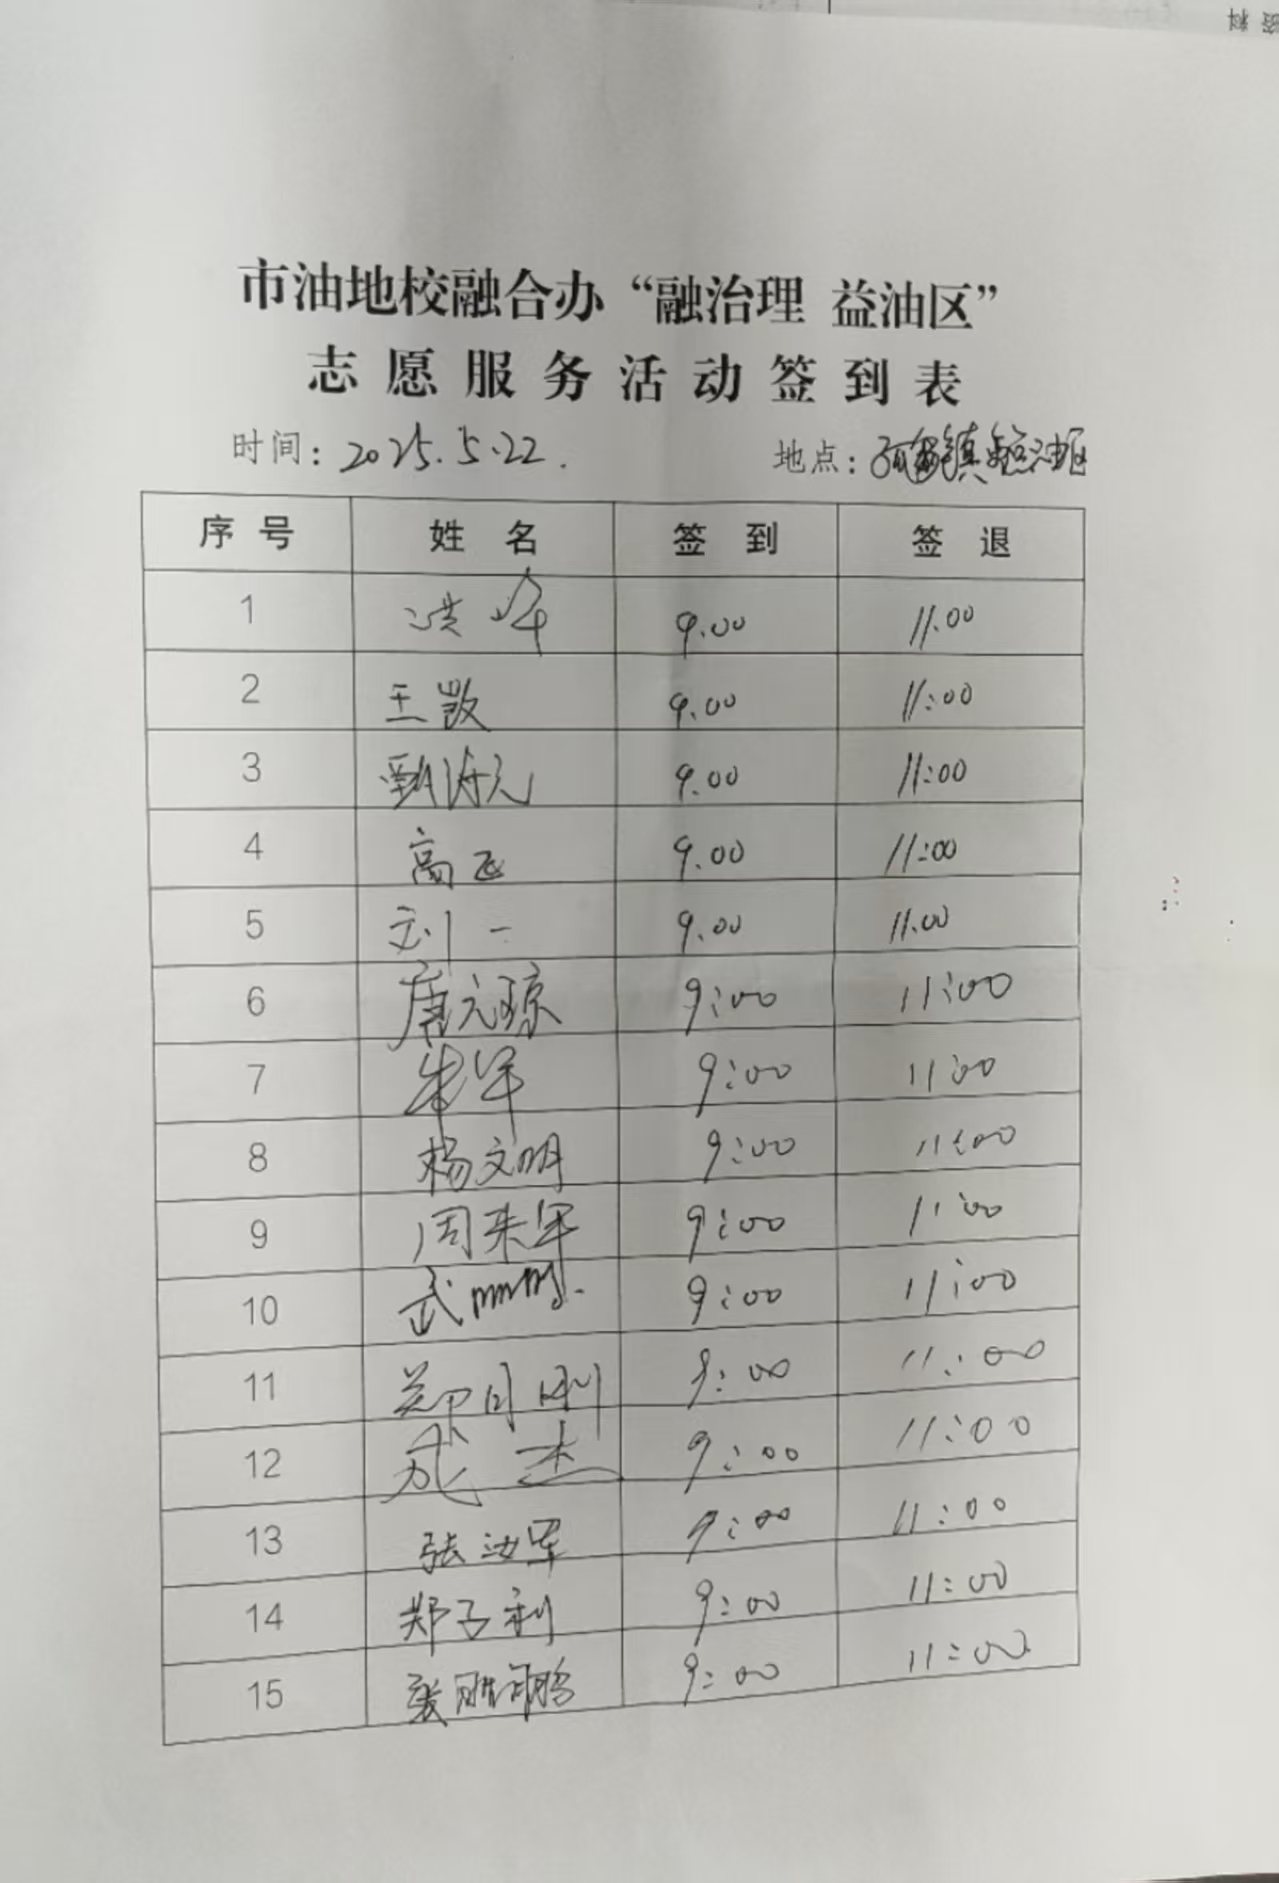 资料
市油地校融合办“融治理 益油区”
志愿服务活动签到表
时间：2025.5.22. 地点：镇油区
序号 姓名 签到 签退
1 洪峰 9.00 11.00
2 王凯 9.00 11:00
3 9.00 11:00
4 高飞 9.00 11:00
5 刘一 9.00 11.00
6 唐元琼 9:00 11:00
7 朱军 9:00 11:00
8 杨文明 9:00 11:00
9 周来军 9:00 11:00
10 武 9:00 11:00
11 郑月刚 9:00 11:00
12 成杰 9:00 11:00
13 张汝军 9:00 11:00
14 郑子利 9:00 11:00
15 9:00 11:00